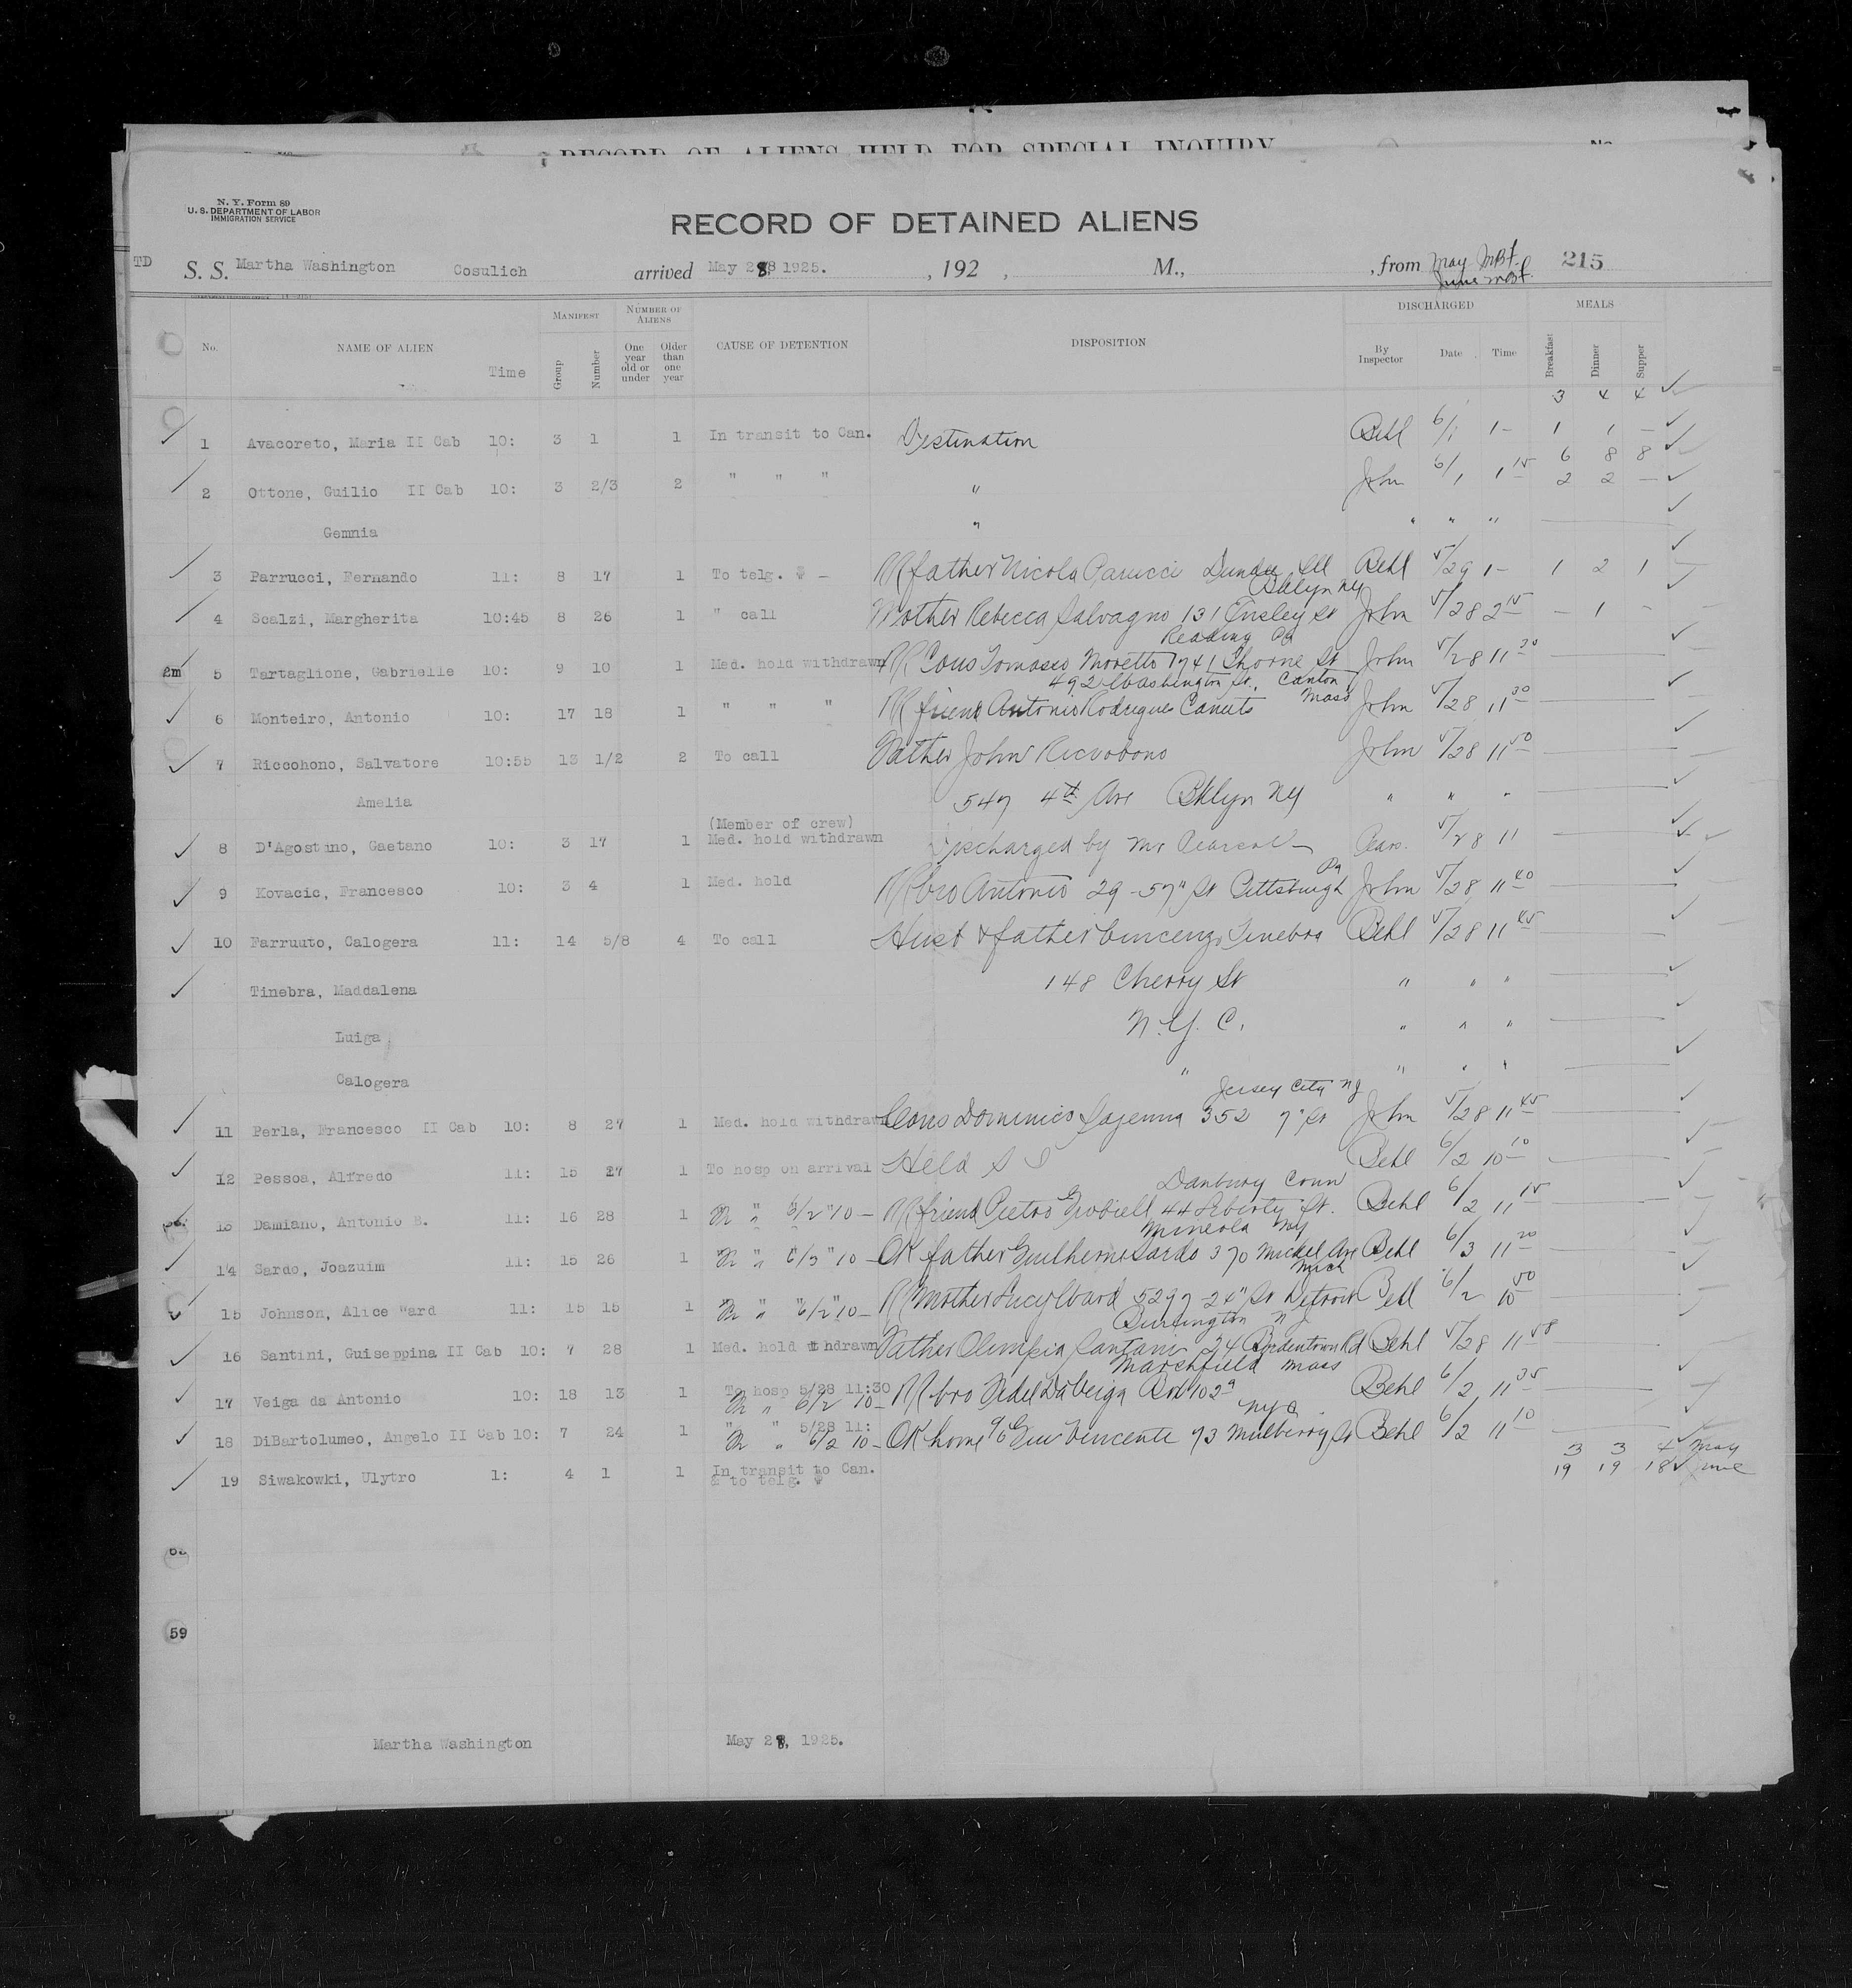 RECORD OF ALIENS HELD FOR SPECIAL INQUIRY
N. Y. Form 89
U. S. DEPARTMENT OF LABOR
IMMIGRATION SERVICE
RECORD OF DETAINED ALIENS
TD S. S. Martha Washington Cosulich arrived May 28 1925. , 192 , M., , from May 215
June
MANIFEST NUMBER OF ALIENS DISCHARGED MEALS
No. NAME OF ALIEN Time Group Number One year old or under Older than one year CAUSE OF DETENTION DISPOSITION By Inspector Date Time Breakfast Dinner Supper
3 4 4
1 Avacoreto, Maria II Cab 10: 3 1 1 In transit to Can. Destination Behl 6/1 1- 1 1 -
6 8 8
2 Ottone, Guilio II Cab 10: 3 2/3 2 " " " " John 6/1 1 15 2 2 -
Gemnia " " " "
3 Parrucci, Fernando 11: 8 17 1 To telg. father Nicola Parucci Dundee Ill Behl 5/29 1- 1 2 1
Bklyn NY
4 Scalzi, Margherita 10:45 8 26 1 " call Mother Rebecca Salvagno 131 St John 5/28 2 15 - 1 -
Reading Pa
2m 5 Tartaglione, Gabrielle 10: 9 10 1 Med. hold withdrawn Cous Tomaseo Moretto 1741 Thorne St John 5/28 11 30
492 Washington St., Canton Mass
6 Monteiro, Antonio 10: 17 18 1 " " " friend Antonio Rodrigues Canuto John 5/28 11 30
7 Riccohono, Salvatore 10:55 13 1/2 2 To call Father John Riccobono John 5/28 11 50
Amelia 547 4th Ave Bklyn NY " " "
(Member of crew)
8 D'Agostino, Gaetano 10: 3 17 1 Med. hold withdrawn Discharged by Mr Pearsall Pears. 5/28 11
Pa
9 Kovacic, Francesco 10: 3 4 1 Med. hold bro Antonio 29-57" St Pittsburgh John 5/28 11 40
10 Farruuto, Calogera 11: 14 5/8 4 To call Husb & father Vincenzo Tinebra Behl 5/28 11 45
Tinebra, Maddalena 148 Cherry St " " "
Luiga N.Y. C. " " "
Calogera " " " "
Jersey City NJ
11 Perla, Francesco II Cab 10: 8 27 1 Med. hold withdrawn Cous Dominico 352 7" St John 5/28 11 45
12 Pessoa, Alfredo 11: 15 27 1 To hosp on arrival Held S I Behl 6/2 10 10
Danbury Conn
13 Damiano, Antonio B. 11: 16 28 1 " 6/2 10- friend Pietro 44 Liberty St. Behl 6/2 11 15
Mineola NY
14 Sardo, Joazuim 11: 15 26 1 " 6/3 10- OK father Guilherme Sardo 370 Ave Behl 6/3 11 20
Mich
15 Johnson, Alice Ward 11: 15 15 1 " 6/2 10- Mother Lucy Ward 5297 24" St Detroit Behl 6/2 10 50
Burlington N J
16 Santini, Guiseppina II Cab 10: 7 28 1 Med. hold thdrawn Father Olimpia Santani 24 Bordentown Rd Behl 5/28 11 58
Marshfield Mass
17 Veiga da Antonio 10: 18 13 1 To hosp 5/28 11:30
" 6/2 10- bro Fidel DaVeiga Box 102 Behl 6/2 11 35
NYC
18 DiBartolumeo, Angelo II Cab 10: 7 24 1 " " 5/28 11:
" 6/2 10- OK home Vincente 73 Mulberry St Behl 6/2 11 10
3 3 4 May
19 Siwakowki, Ulytro 1: 4 1 1 In transit to Can. 19 19 18 June
& to telg.
59
Martha Washington May 28, 1925.